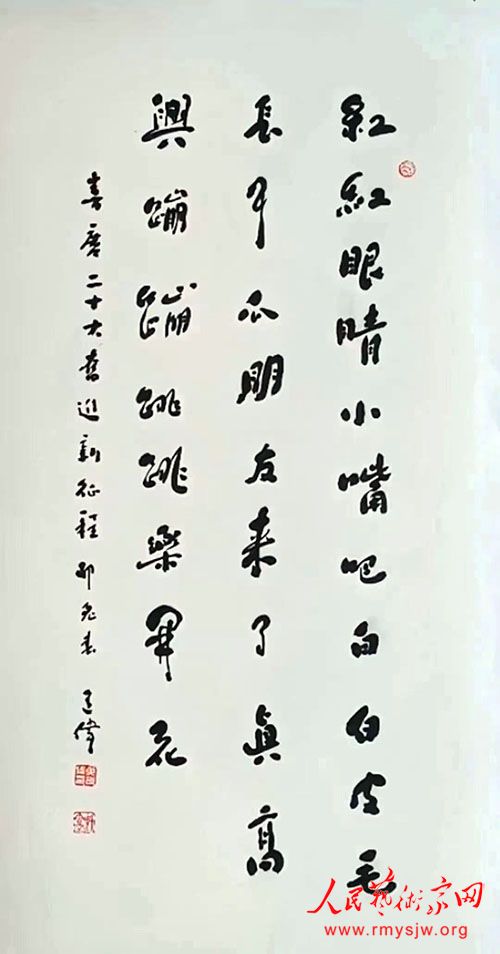 紅紅眼睛小嘴吧白白皮毛
長耳爪朋友来了眞高
興蹦蹦跳跳樂開花
喜慶二十大奮進新征程 卯兔春 偉
人民藝術家网
www.rmysjw.org